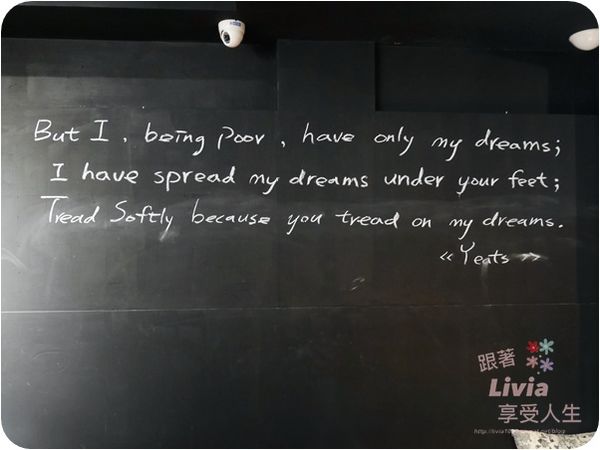 But I, being poor, have only my dreams;
I have spread my dreams under your feet;
Tread Softly because you tread on my dreams.
«Yeats»
跟著
Livia
享受人生